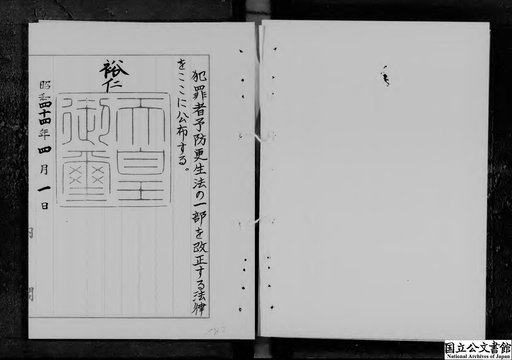 犯罪者予防更生法の一部を改正する法律
をここに公布する。
裕仁
天皇
御璽
昭和四十四年四月一日
国立公文書館
National Archives of Japan